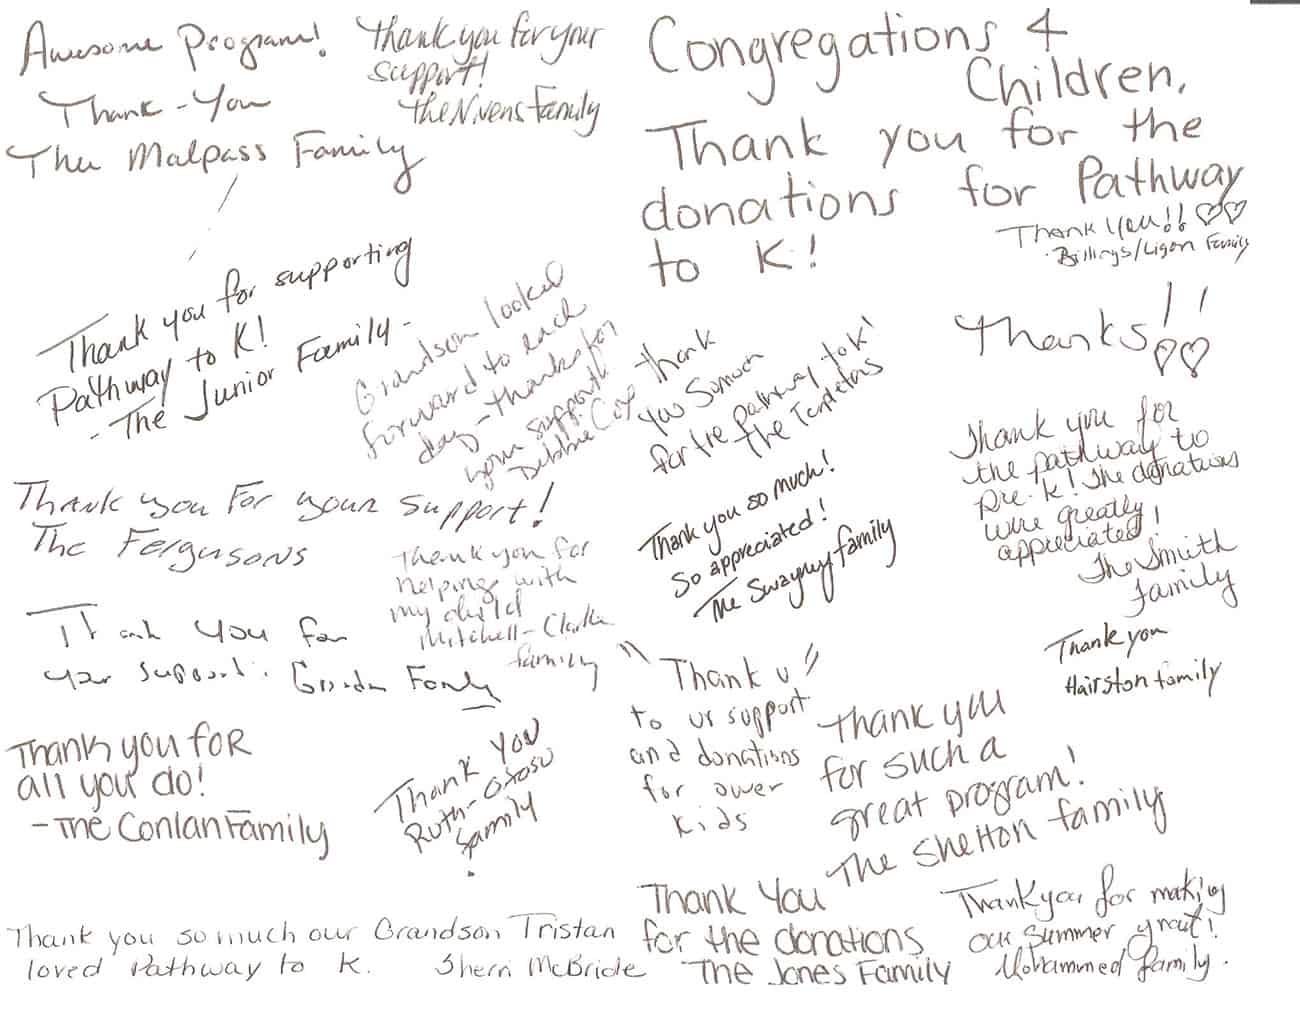 Awesome Program!
Thank-You
The Malpass Family
Thank you for your
support!
The Nivens Family
Congregations 4
Children,
Thank you for the
donations for Pathway
to K!
Thank You!! ♡♡
Billings/Ligon Family
Thank you for supporting
Pathway to K!
- The Junior Family -
Grandson looked
forward to each
day - thanks for
your support
Debbie Cox
Thank
You So much
for the pathway to K!
The
Thanks!!
♡♡
Thank you for
the pathway to
pre-K! The donations
were greatly
appreciated!
The Smith
Family
Thank you so much!
So appreciated!
The Swayney family
Thank you For your support!
The Fergusons
Thank you for
helping with
my child
Mitchell-Clarke
family
Thank you for
your support.
Family
Thank you
Hairston family
"Thank u"
to ur support
and donations
for ower
kids
Thank you
for such a
great program!
The Shelton family
Thank you for
all you do!
- The Conlan Family
Thank You
Ruth-Ofosu
family.
Thank you so much our Grandson Tristan
loved Pathway to K. Sherri McBride
Thank You
for the donations
The Jones Family
Thank you for making
our summer great!
Mohammed family.